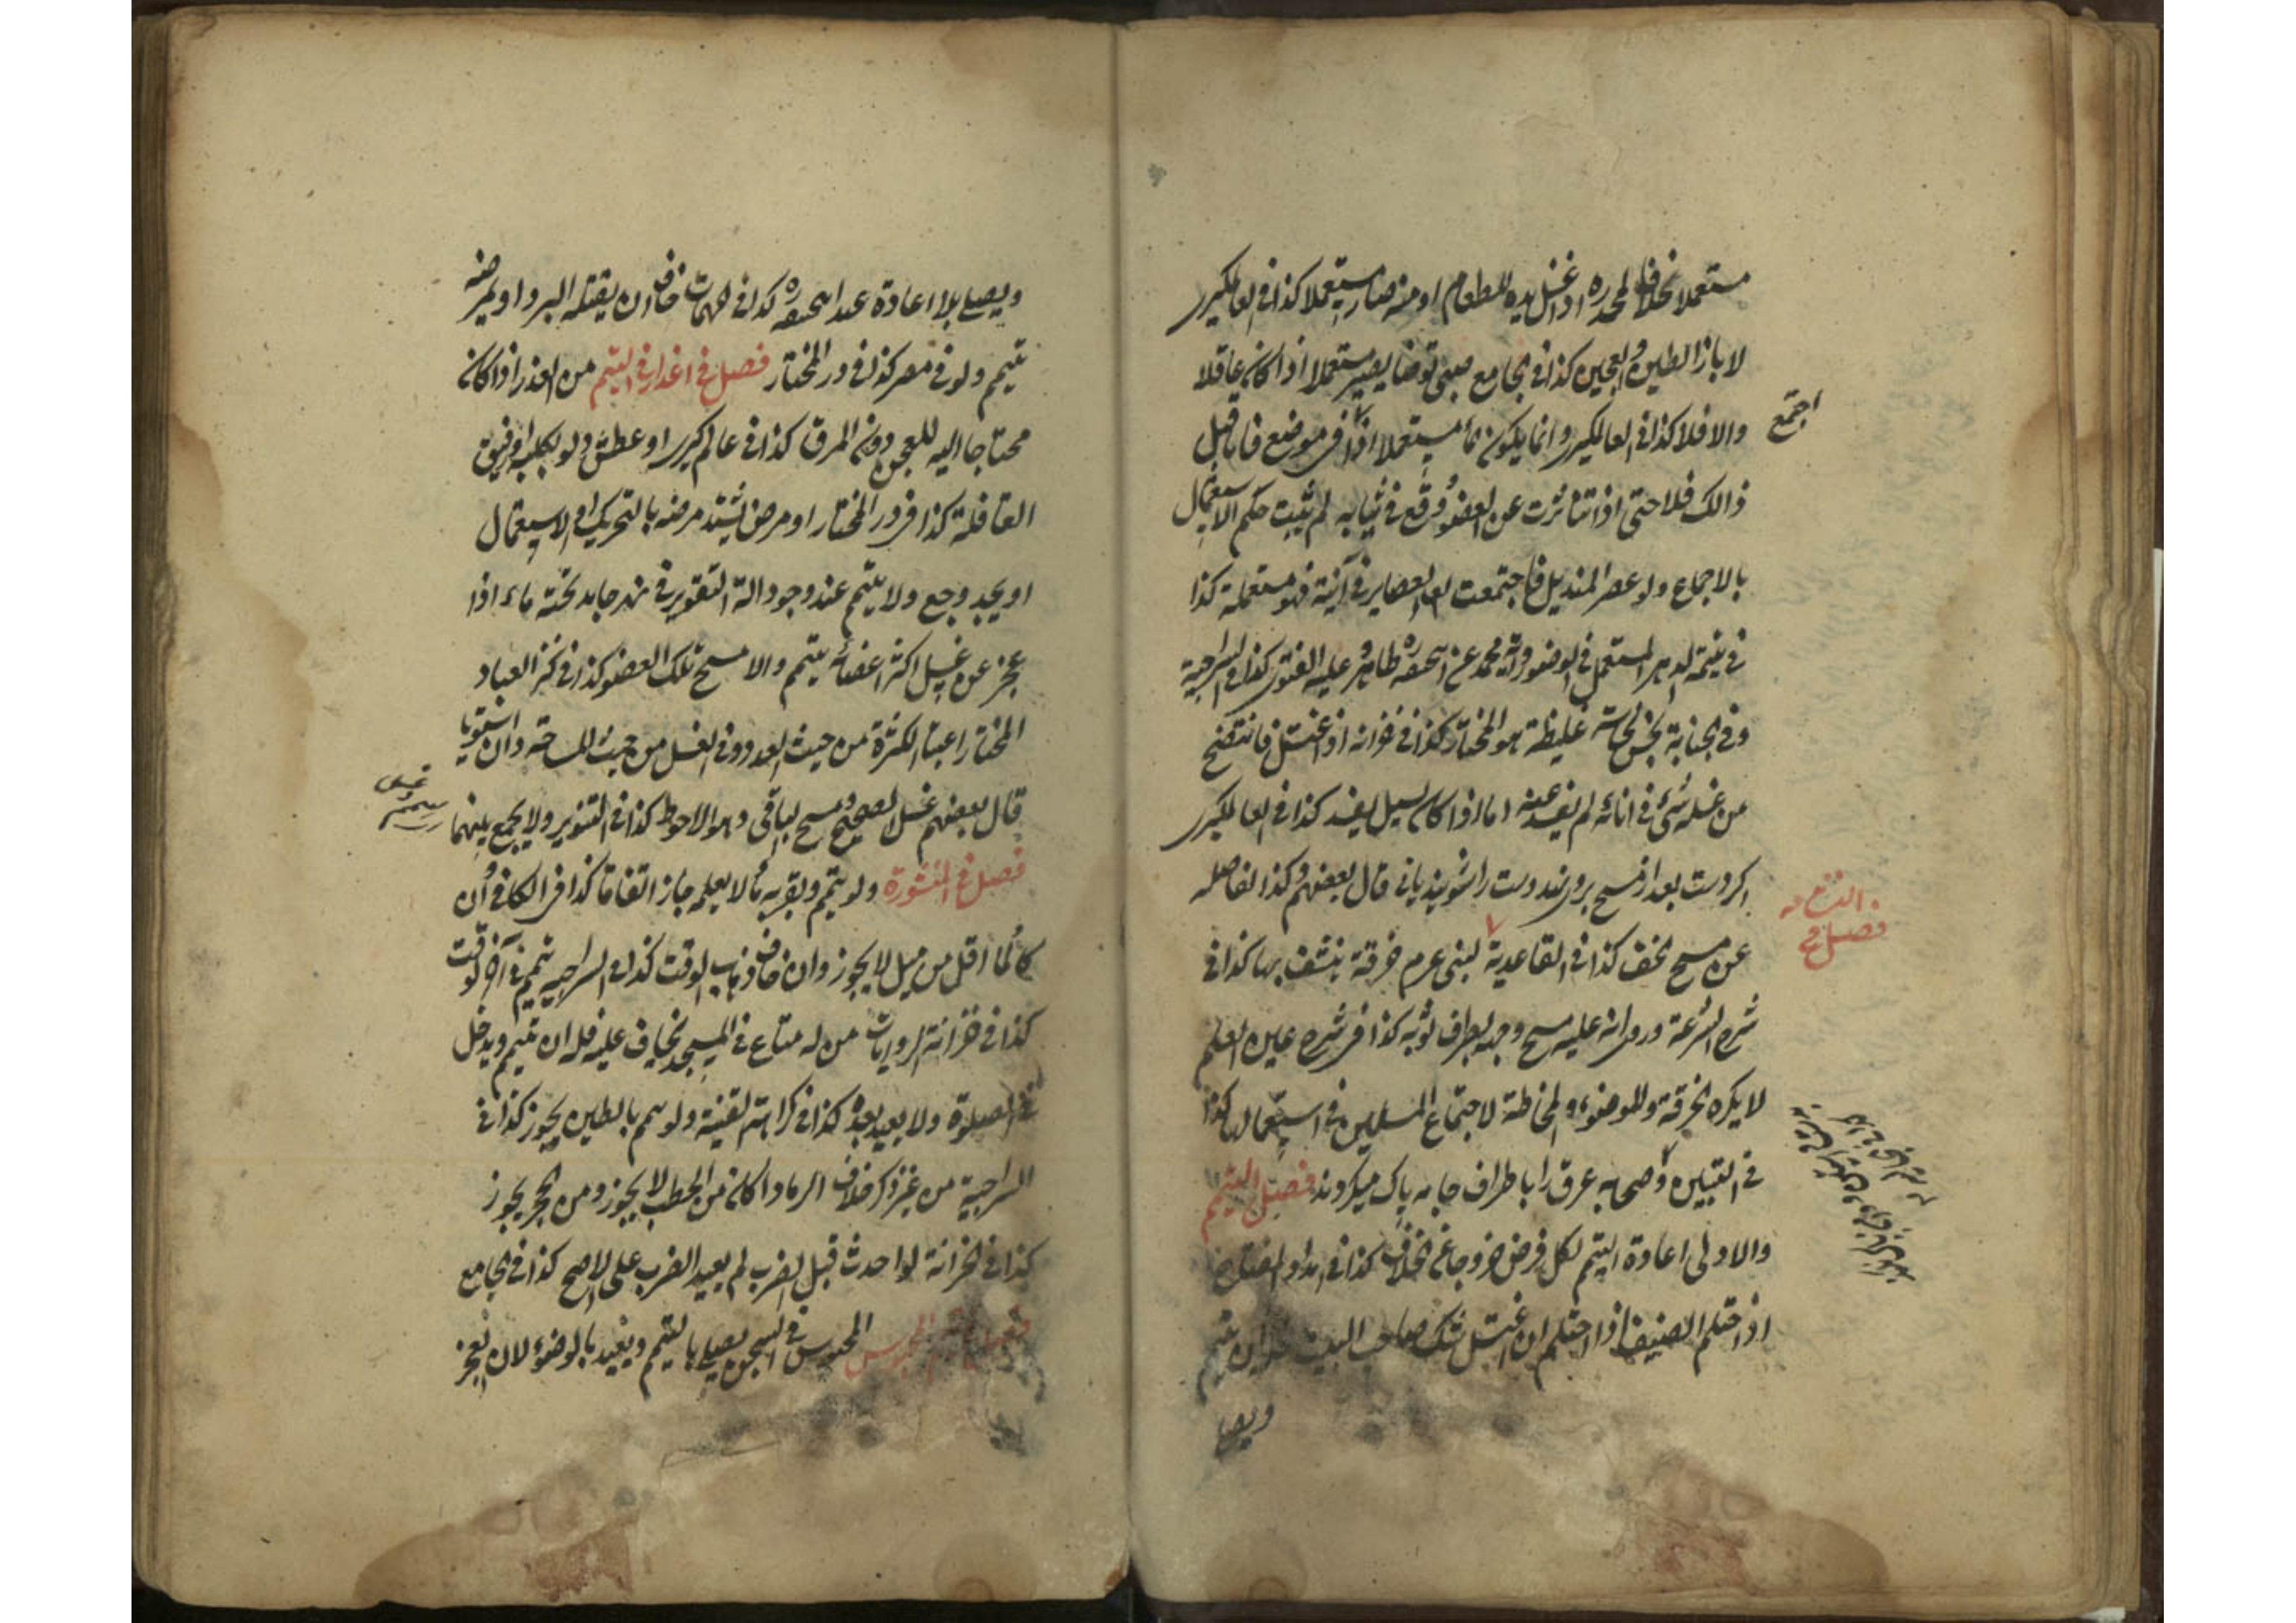 مستعملا بخلاف المحدره اذا غسل يده للطعام او منه صار مستعملا كذا في العالمكيرى
لا باز الطين والعجين كذا في الجامع صبى توضأ يصير مستعملا اذا كان عاقلا
والا فلا كذا في العالمكيرى وانما يكون ماء مستعملا اذا في موضع فاما قبل
اجتمع
ذالك فلا حتى اذا تناثرت عن العضو وقع في ثيابه لم يثبت حكم الاستعمال
بالاجماع ولو عصر المنديل فاجتمعت العصاير في آنية فهو مستعملة كذا
في يتيمة الدهر المستعمل في الوضوء رواية محمد عن ابيحنفه ره طاهر وعليه الفتوى كذا في السراجية
وفي الجنابة نجس نجاسة غليظة هو المختار كذا في خزانه اذا اغتسل فانتضح
من غسله شئ في انائه لم يفسد عينه اما اذا كان يسيل يفسد كذا في العالمكيرى
اكر دست بعد از مسح بروى نهد دست را شويد يا نى قال بعضهم وكذا الفاضله
فصل في
عن مسح الخف كذا في القاعدية لبنى عرم خرقة ينشف بها كذا في
شرح الشرعة وروى انه عليه مسح وجهه بطراف ثوبه كذا في شرح عين العلم
لا يكره الخرقة للوضوء والمخاطة لاجتماع المسلمين في استعمالها كذا
في التبيين وصحابه عرق را باطراف جامه پاك ميكردند فصل التيمم
والاولى اعادة التيمم لكل فرض خروجا عن الخلاف كذا في امداد الفتاح
اذا احتلم الضيف اذا احتلم ان اغتسل شك صاحب البيت ان يتيمم
ويصلى
ويصلى بلا اعادة عند ابيحنفه ره كذا في المهمات خاف ان يقتله البرد او يمرضه
تيمم ولو في مصر كذا في در المختار فصل في اعذار في التيمم من العذر اذا كان
محتاجا اليه للعجن دون المرق كذا في عالمكيرى او عطش ولو لكلبه او رفيق
القافلة كذا في در المختار او مرض يشتد مرضه بالتحريك او الاستعمال
او يجد وجع ولا يتيمم عند وجود الة التقوير في نهر جامد تحته ماء اذا
عجز عن غسل اكثر اعضائه يتيمم والا مسح تلك العضو كذا في كنز العباد
المختار اعتبار الكثرة من حيث العدد وفي الغسل من حيث المساحة وان استويا
قال بعضهم غسل الصحيح ومسح الباقى وهو الاحوط كذا في التنوير ولا يجمع بينهما
فصل في المنثورة ولو تيمم وبقربه ماء لا يعلمه جاز اتفاقا كذا في الكافي وان
كان ماء اقل من ميل لا يجوز وان خاف ذهاب الوقت كذا في السراجيه تيمم في آخر الوقت
كذا في خزانة الروايات من له متاع في المسجد يخاف عليه فله ان يتيمم ويدخل
في الصلوة ولا يعيد بعده كذا في كراهته القنية ولو تيمم بالطين يجوز كذا في
السراجية من غير ذكر خلاف الرماد اكان من الحطب لا يجوز ومن الحجر يجوز
كذا في الخزانة لو احدث قبل الضرب لم يعيد الضرب على الاصح كذا في الجامع
المحبوس في السجن يصلى بالتيمم ويعيد بالوضوء لان العجز